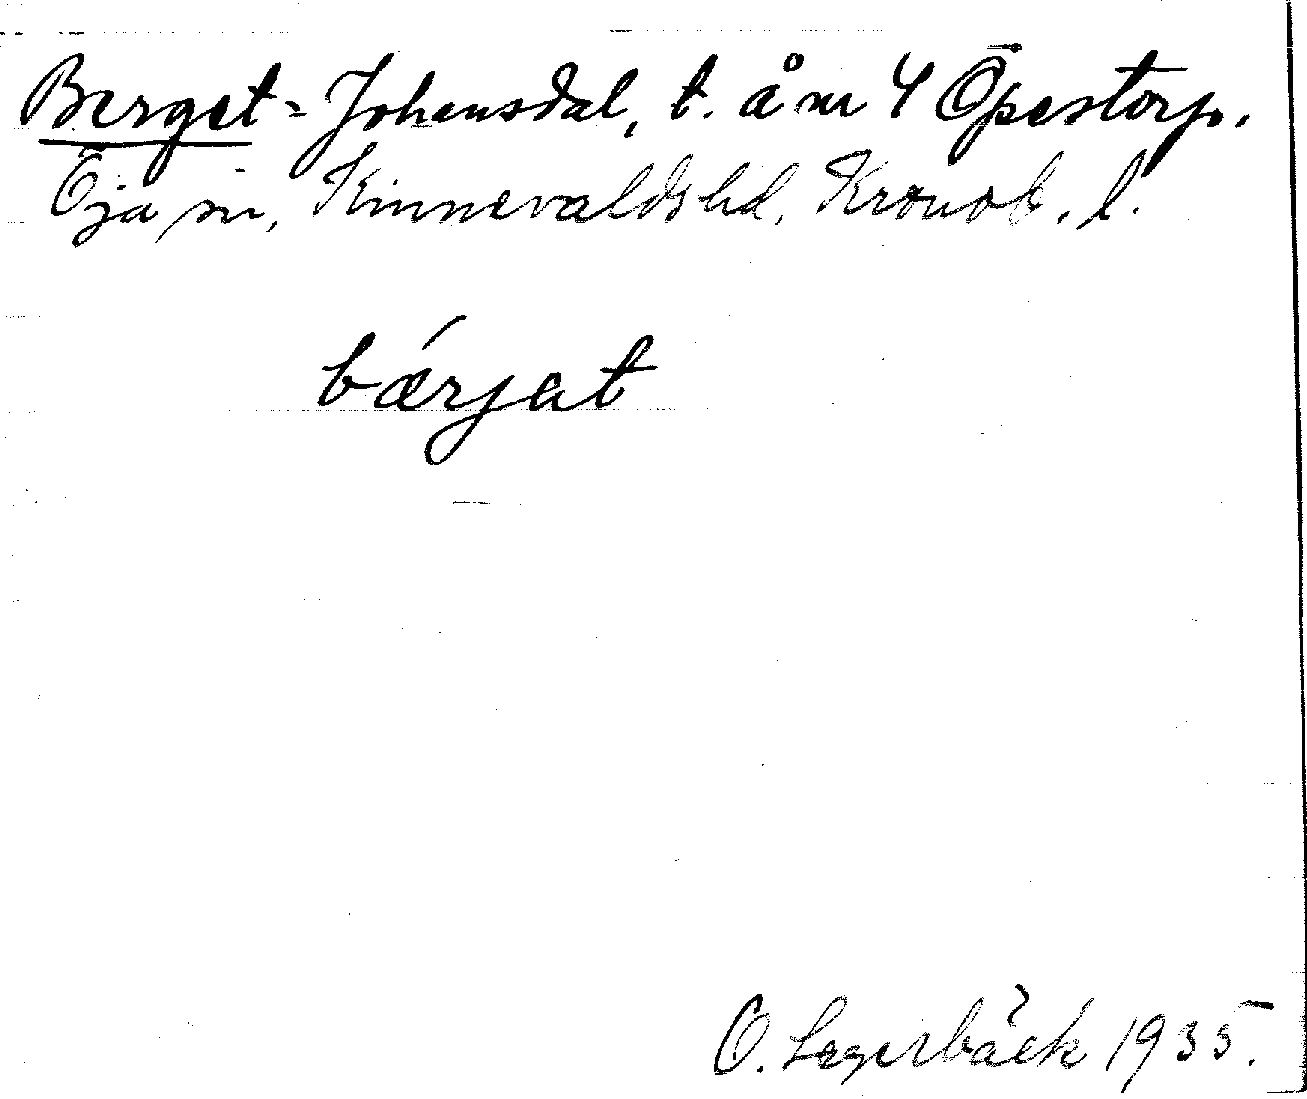 Berget = Johansdal, t. å nr 4 Öpestorp.
Öja sn, Kinnevalds hd, Kronob. l.
bǽrjat
O. Lagerbäck 1935.